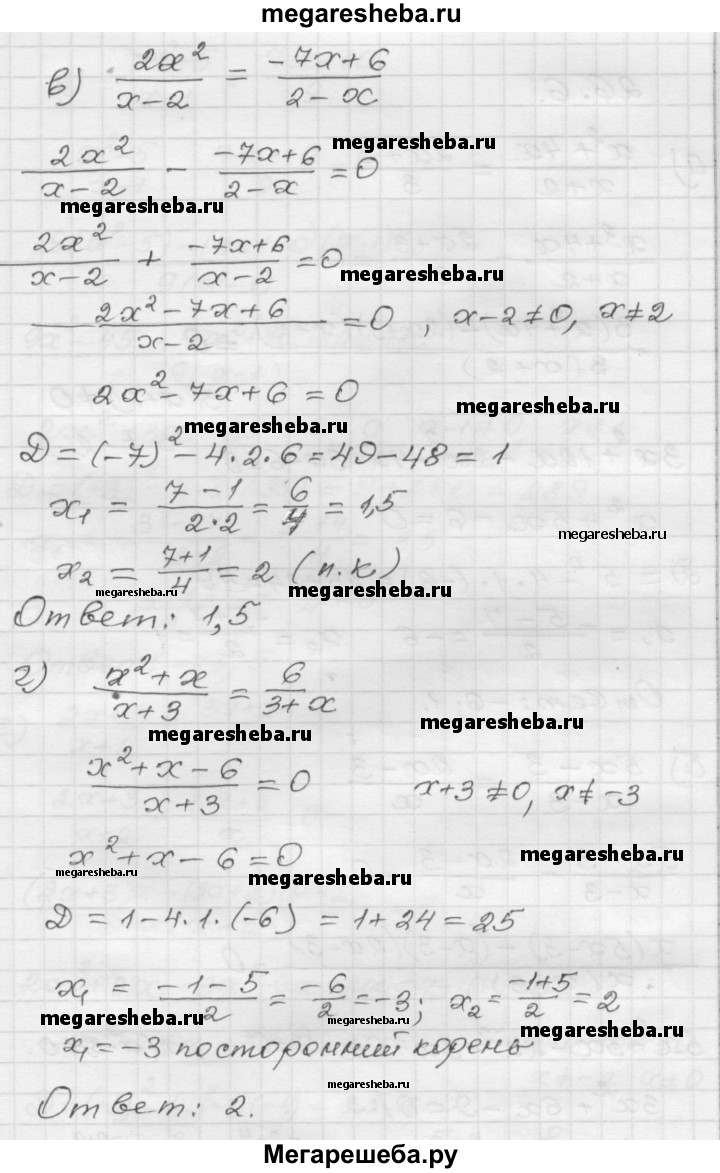 megaresheba.ru
в) 2x²/(x-2) = (-7x+6)/(2-x)
megaresheba.ru
2x²/(x-2) - (-7x+6)/(2-x) = 0
megaresheba.ru
2x²/(x-2) + (-7x+6)/(x-2) = 0
megaresheba.ru
(2x²-7x+6)/(x-2) = 0, x-2≠0, x≠2
2x²-7x+6=0
megaresheba.ru
megaresheba.ru
D=(-7)²-4·2·6=49-48=1
x₁ = (7-1)/(2·2) = 6/4 = 1,5
megaresheba.ru
x₂ = (7+1)/4 = 2 (п.к)
megaresheba.ru
megaresheba.ru
Ответ: 1,5
г) (x²+x)/(x+3) = 6/(3+x)
megaresheba.ru
megaresheba.ru
(x²+x-6)/(x+3) = 0 x+3≠0, x≠-3
x²+x-6=0
megaresheba.ru
megaresheba.ru
megaresheba.ru
D=1-4·1·(-6)=1+24=25
x₁ = (-1-5)/2 = -6/2 = -3; x₂ = (-1+5)/2 = 2
megaresheba.ru
megaresheba.ru
megaresheba.ru
x₁=-3 посторонний корень
megaresheba.ru
Ответ: 2.
Мегарешеба.ру